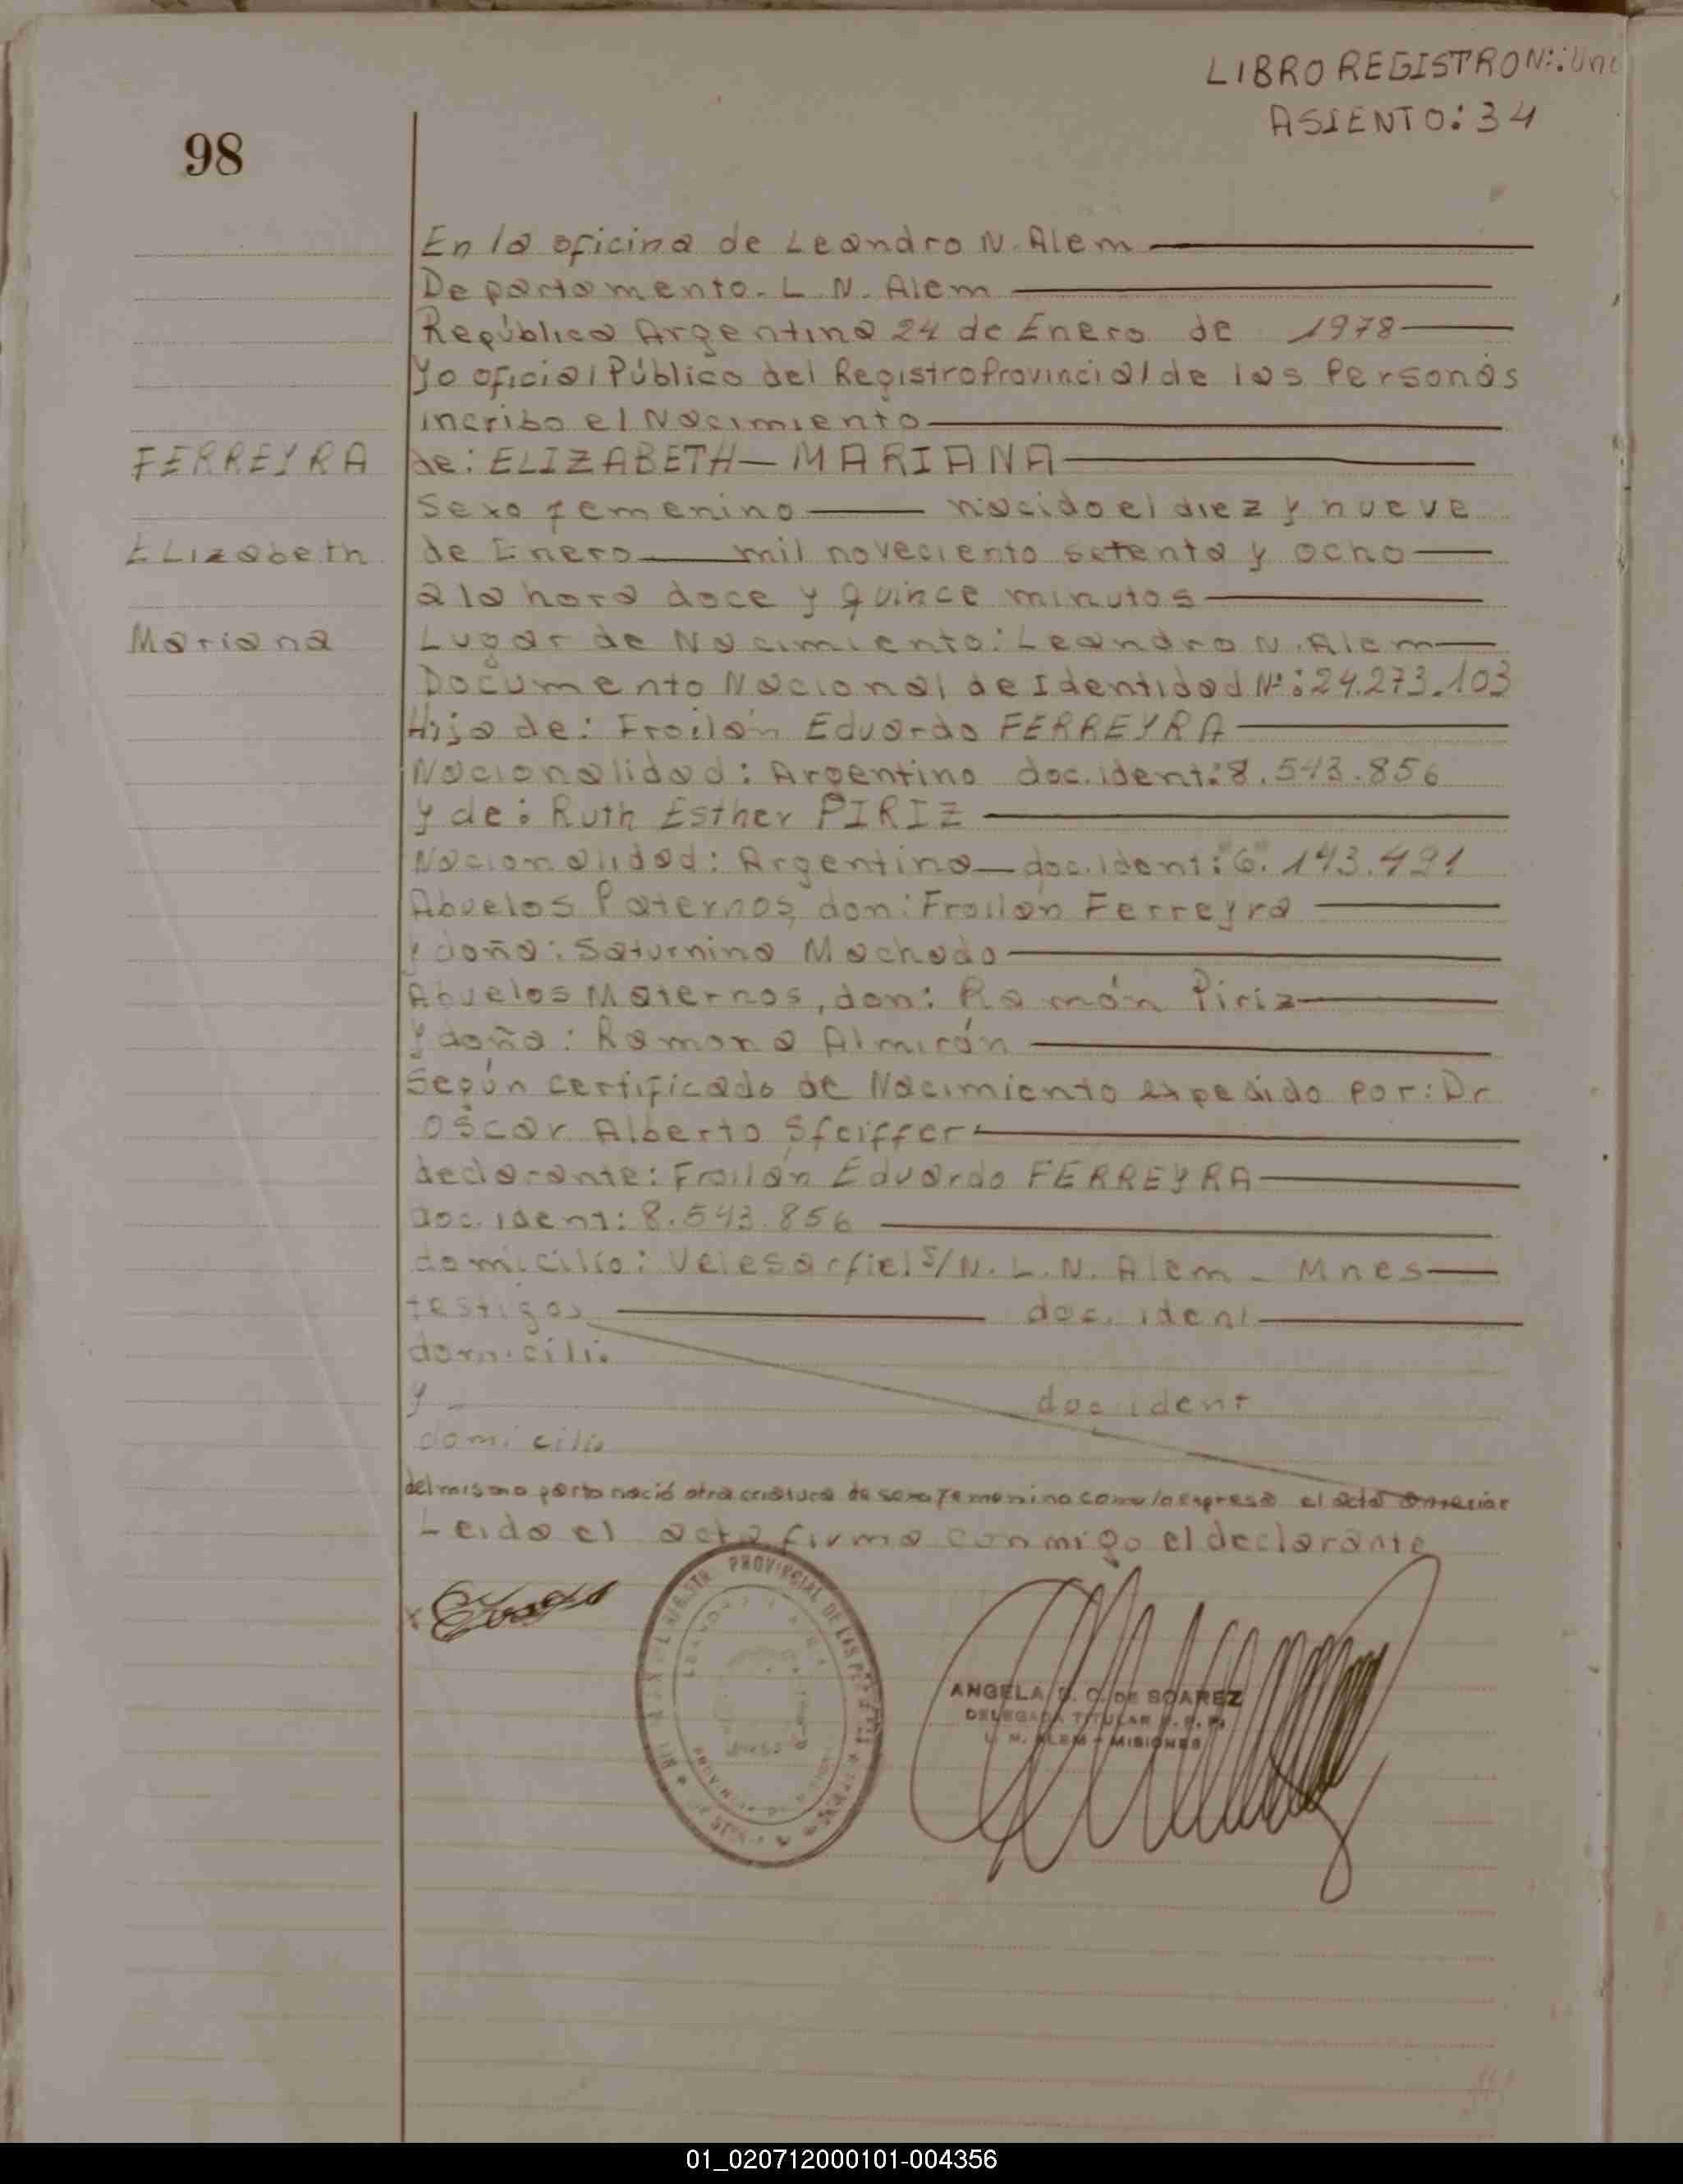 LIBRO REGISTRO Nº: Uno
ASIENTO: 34
98
En la oficina de Leandro N. Alem
Departamento. L. N. Alem
República Argentina 24 de Enero de 1978
Yo oficial Público del Registro Provincial de las Personas
incribo el Nacimiento
FERREYRA
de: ELIZABETH - MARIANA
Sexo femenino nacido el diez y nueve
Elizabeth
de Enero mil noveciento setenta y ocho
a la hora doce y quince minutos
Mariana
Lugar de Nacimiento: Leandro N. Alem
Documento Nacional de Identidad Nº: 24.273.103
Hija de: Froilán Eduardo FERREYRA
Nacionalidad: Argentino doc. ident: 8.543.856
y de: Ruth Esther PIRIZ
Nacionalidad: Argentina doc. ident: 6.143.491
Abuelos Paternos, don: Froilan Ferreyra
y doña: Saturnina Machado
Abuelos Maternos, don: Ramón Piriz
y doña: Ramona Almirón
Según certificado de Nacimiento expedido por: Dr
Oscar Alberto Sfeiffer
declarante: Froilán Eduardo FERREYRA
doc. ident: 8.543.856
domicilio: Velesarfiel S/N. L. N. Alem - Mnes
testigos doc. ident
domicilio
y doc. ident
domicilio
del mismo parto nació otra criatura de sexo femenino como lo expresa el acta anterior
Leida el acta firma conmigo el declarante
PROVINCIAL DE LAS
ANGELA C. DE SOAREZ
DELEGADA TITULAR R. P. P.
L. N. ALEM - MISIONES
01_020712000101-004356